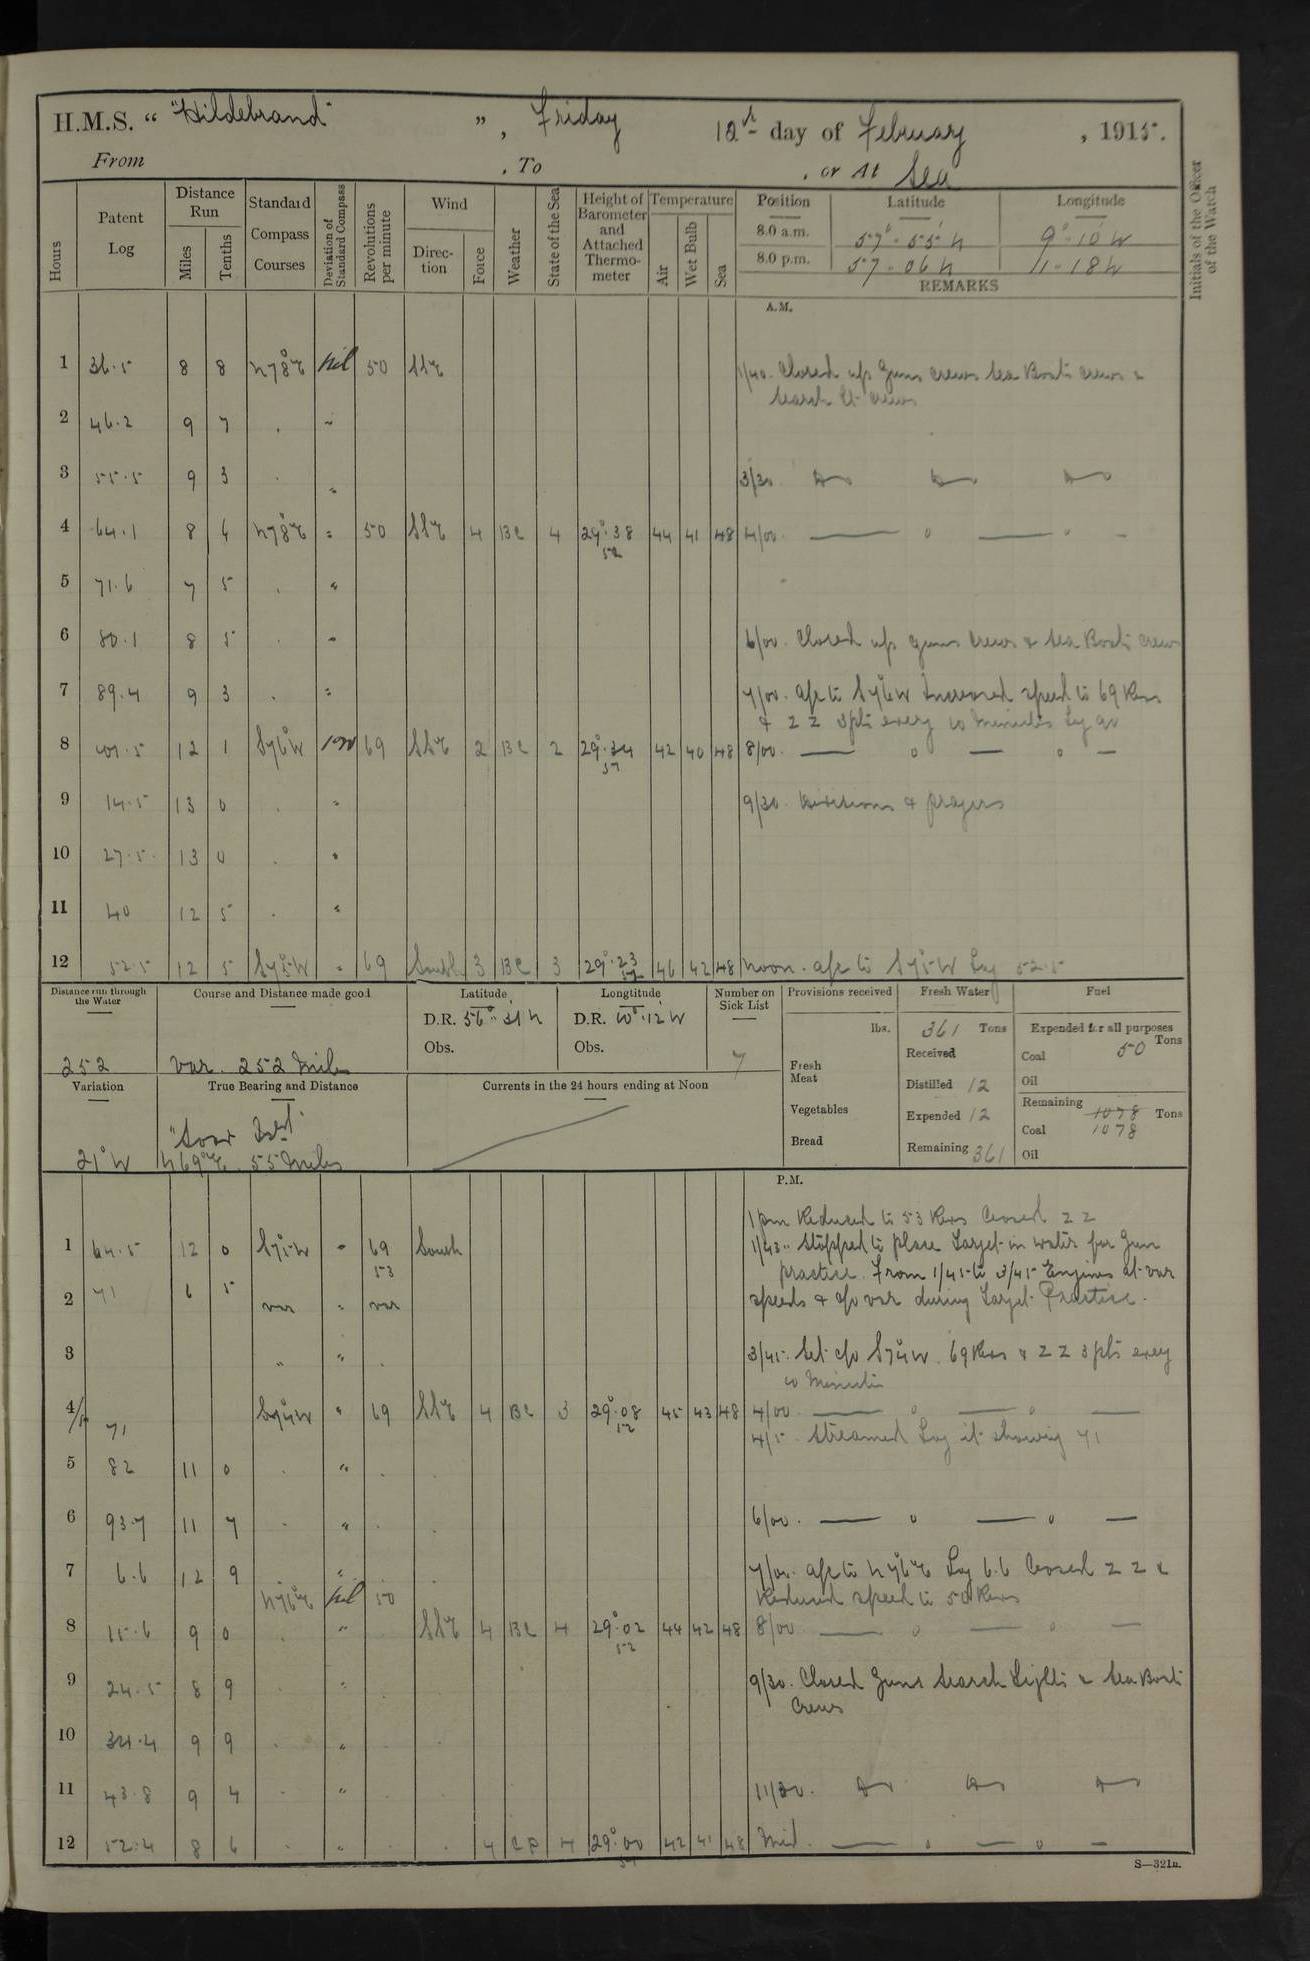 H.M.S. “ "Hildebrand" ” , Friday 12th day of February , 1915.
From , To , or At Sea
Hours
Patent Log
Distance Run
Miles
Tenths
Standard Compass Courses
Deviation of Standard Compass
Revolutions per minute
Wind
Direction
Force
Weather
State of the Sea
Height of Barometer and Attached Thermometer
Temperature
Air
Wet Bulb
Sea
Position Latitude Longitude
8.0 a.m. 57°.55' N 9°.10' W
8.0 p.m. 57.06 N 11.18 W
REMARKS
Initials of the Officer of the Watch
A.M.
1 36.5 8 8 N78°E Nil 50 SSE 1/40. Closed up Guns crews Sea Boats crews &
Search Lt crews
2 46.2 9 7 . "
3 55.5 9 3 . " 3/30 Do Do Do
4 64.1 8 6 N78°E " 50 SSE 4 BC 4 29.38 44 41 48 4/00 — " — " —
52
5 71.6 7 5 . "
6 80.1 8 5 . " 6/00. Closed up guns crews & Sea Boats crews
7 89.4 9 3 . " 7/00. a/c to S76W Increased speed to 69 Revs
& ZZ 3 pts every 10 Minutes Log 90
8 01.5 12 1 S76°W 69 SSE 2 BC 2 29.34 42 40 48 8/00. — " — " —
9 14.5 13 0 . " 9/30. Divisions & prayers
10 27.5 13 0 . "
11 40 12 5 . "
12 52.5 12 5 S75°W " 69 South 3 BC 3 29.23 46 42 48 Noon. a/c to S75°W Log 52.5
Distance run through the Water
252
Course and Distance made good
Var. 252 Miles
Latitude
D.R. 56°.31' N
Obs.
Longtitude
D.R. 10°.12' W
Obs.
Number on Sick List
7
Provisions received
lbs.
Fresh Meat
Vegetables
Bread
Fresh Water
361 Tons
Received
Distilled 12
Expended 12
Remaining 361
Fuel
Expended for all purposes
Tons
Coal 50
Oil
Remaining 1078 Tons
Coal 1078
Oil
Variation
21°W
True Bearing and Distance
N69°E. 55 Miles
Currents in the 24 hours ending at Noon
P.M.
1 pm Reduced to 53 Revs Ceased ZZ
1 64.5 12 0 S75°W " 69 South 1/43 " Stopped to place Target in water for Gun
53 practice. From 1/45 to 3/45 Engines at var
2 71 6 5 var " var speeds & c/o var during Target Practice.
3 " " . 3/45. Set c/o S74°W. 69 Revs & ZZ 3 pts every
10 Minutes
4/5 71 S74°W " 69 SSE 4 BC 3 29.08 45 43 48 4/00 — " — " —
52
4/5. Streamed Log it showing 71
5 82 11 0 . " .
6 93.7 11 7 . " . 6/00. — " — " —
7 6.6 12 9 . " . 7/00. a/c to N76°E Log 6.6 Ceased ZZ &
N76°E Nil 50 Reduced speed to 50 Revs
8 15.6 9 0 . " SSE 4 BC 4 29.02 44 42 48 8/00 — " — " —
52
9 24.5 8 9 . " 9/30. Closed Guns Search Lights & Sea Boats
Crews
10 34.4 9 9 . "
11 43.8 9 4 . " 11/30. Do Do Do
12 52.4 8 6 . " . . 4 CP 4 29.00 42 41 48 Mid. — " — " —
S—321a.